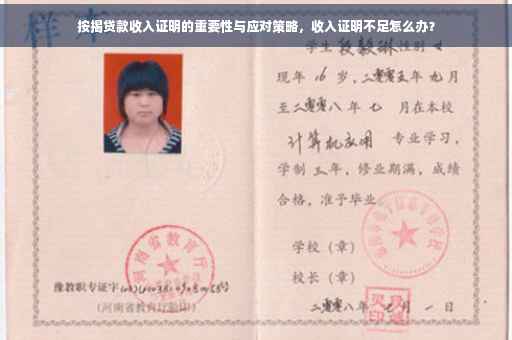 按揭贷款收入证明的重要性与应对策略，收入证明不足怎么办？
样本
学生段毅琳性别女
现年16岁，二零零五年九月
至二零零八年七月在本校
计算机应用专业学习，
学制三年，修业期满，成绩
合格，准予毕业
学校（章）
校长（章）
河南省教育厅
豫教职专证字
（河南省教育厅验印）
二零零八年七月一日